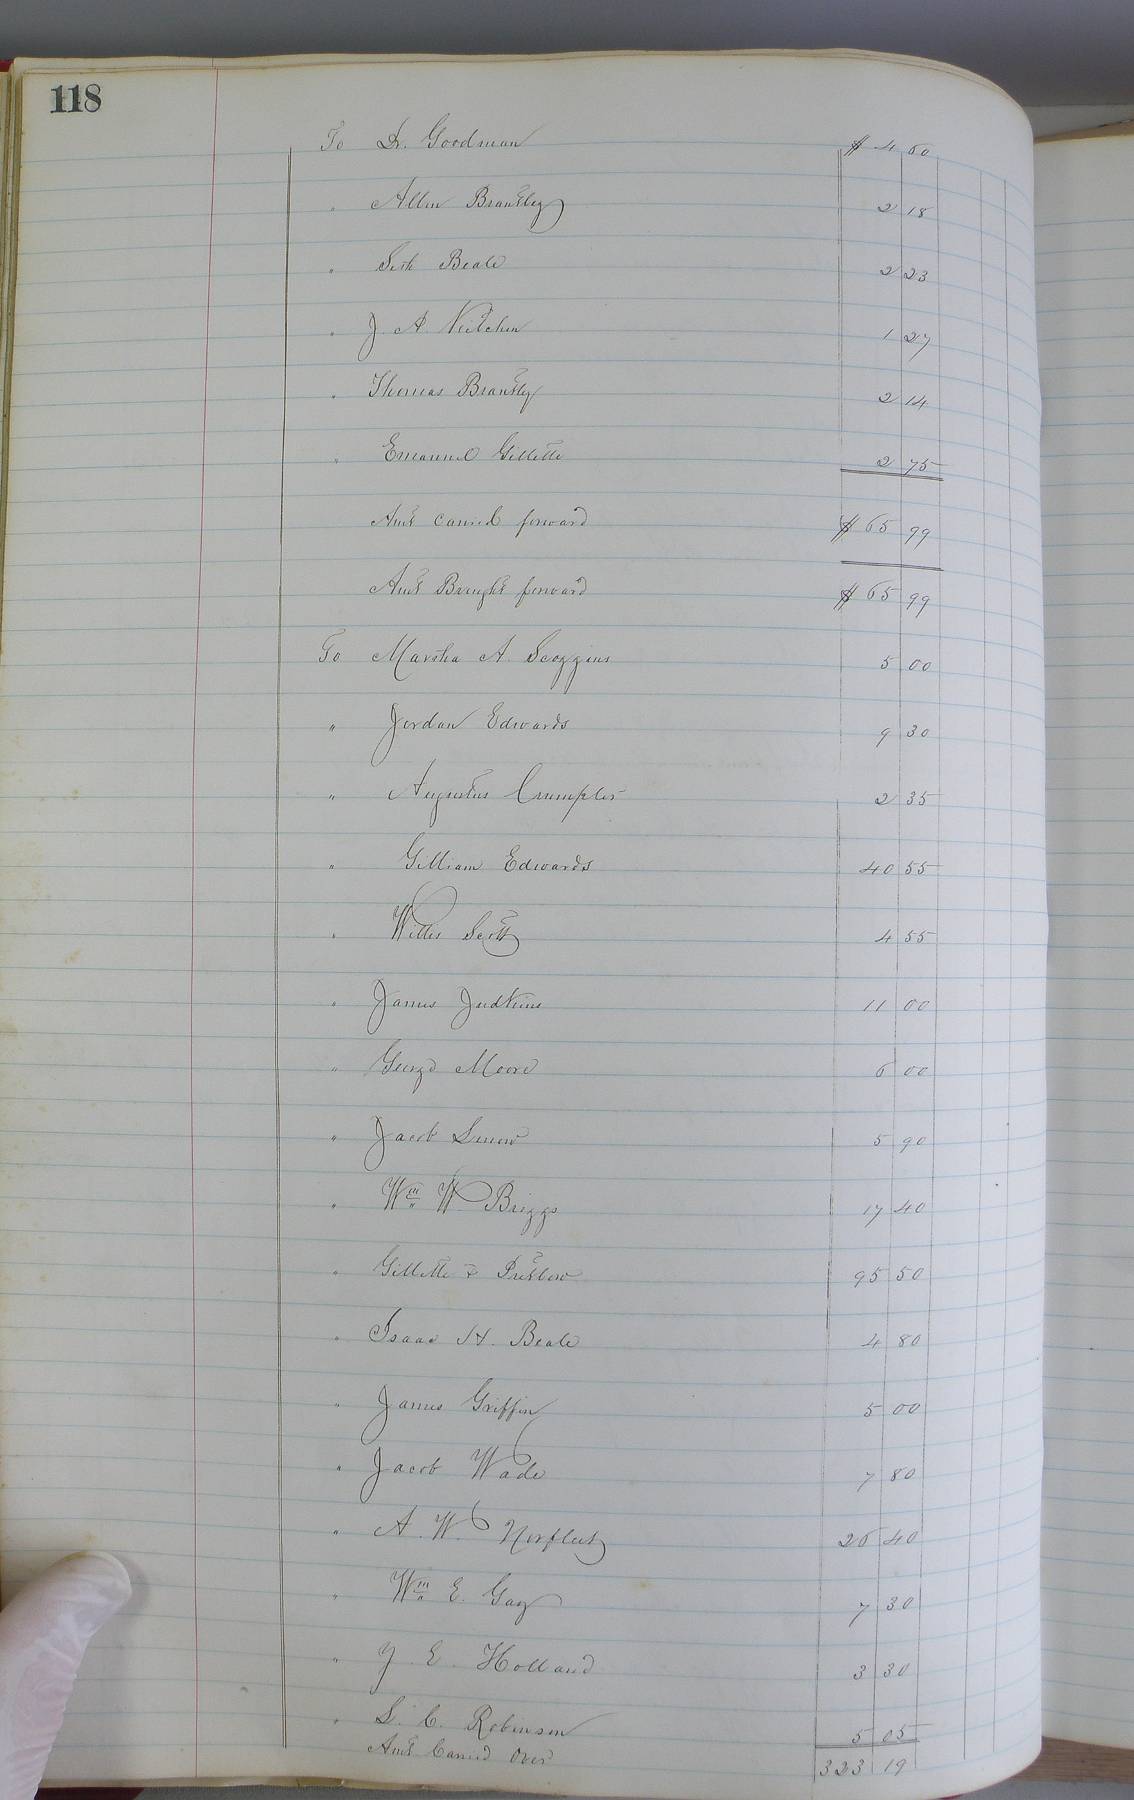 118
To Dr. Goodman $ 4 60
" Allen Brantley 2 18
" Seth Beale 2 23
" J. A. Kitchen 1 27
" Thomas Brantley 2 14
" Emanuel Gillette 2 75
Amt carried forward $ 65 99
Amt Brought forward $ 65 99
To Marsha A. Scoggins 5 00
" Jordan Edwards 9 30
" Augustus Crumpler 2 35
" Gilliam Edwards 40 55
" Willis Scott 4 55
" James Judkins 11 00
" George Moore 6 00
" Jacob 5 90
" Wm W Briggs 17 40
" Gillette & Pretlow 95 50
" Isaac H. Beale 4 80
" James Griffin 5 00
" Jacob Wade 7 80
" A. W. Norfleet 26 40
" Wm E. Gay 7 30
" E. Holland 3 30
" S. C. Robinson 5 05
Amt Carried Over 323 19